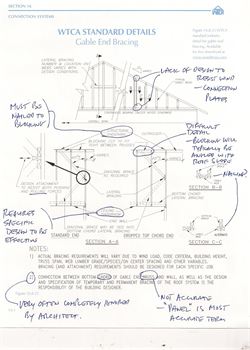 SECTION 14
CONNECTION SYSTEMS
WTCA STANDARD DETAILS
Gable End Bracing
LACK OF DESIGN TO
RESIST LOAD
CONNECTION
PLATES
MUST BE
NAILED TO
BLOCKING
DIFFICULT
DETAIL -
BLOCKING WILL
TYPICALLY BE
ANGLED WITH
ROOF SLOPE
NAILED
SECTION B-B
REQUIRES
SPECIAL
DESIGN TO BE
EFFECTIVE
SECTION C-C
STANDARD END
DROPPED TOP CHORD END
SECTION A-A
NOTES:
1) ACTUAL BRACING REQUIREMENTS WILL VARY DUE TO WIND LOAD, CODE CRITERIA, BUILDING HEIGHT,
TRUSS SPAN, WEB LUMBER GRADE/SPECIES/ON CENTER SPACING AND OTHER VARIABLES.
BRACING (AND ATTACHMENT) REQUIREMENTS SHOULD BE DESIGNED FOR EACH SPECIFIC JOB.
2) CONNECTION BETWEEN BOTTOM CHORD OF GABLE END TRUSS AND WALL AS WELL AS THE DESIGN
AND SPECIFICATION OF TEMPORARY AND PERMANENT BRACING OF THE ROOF SYSTEM IS THE
RESPONSIBILITY OF THE BUILDING DESIGNER.
VERY OFTEN COMPLETELY IGNORED
BY ARCHITECT.
NOT ACCURATE
- "PANEL" IS MOST
ACCURATE TERM